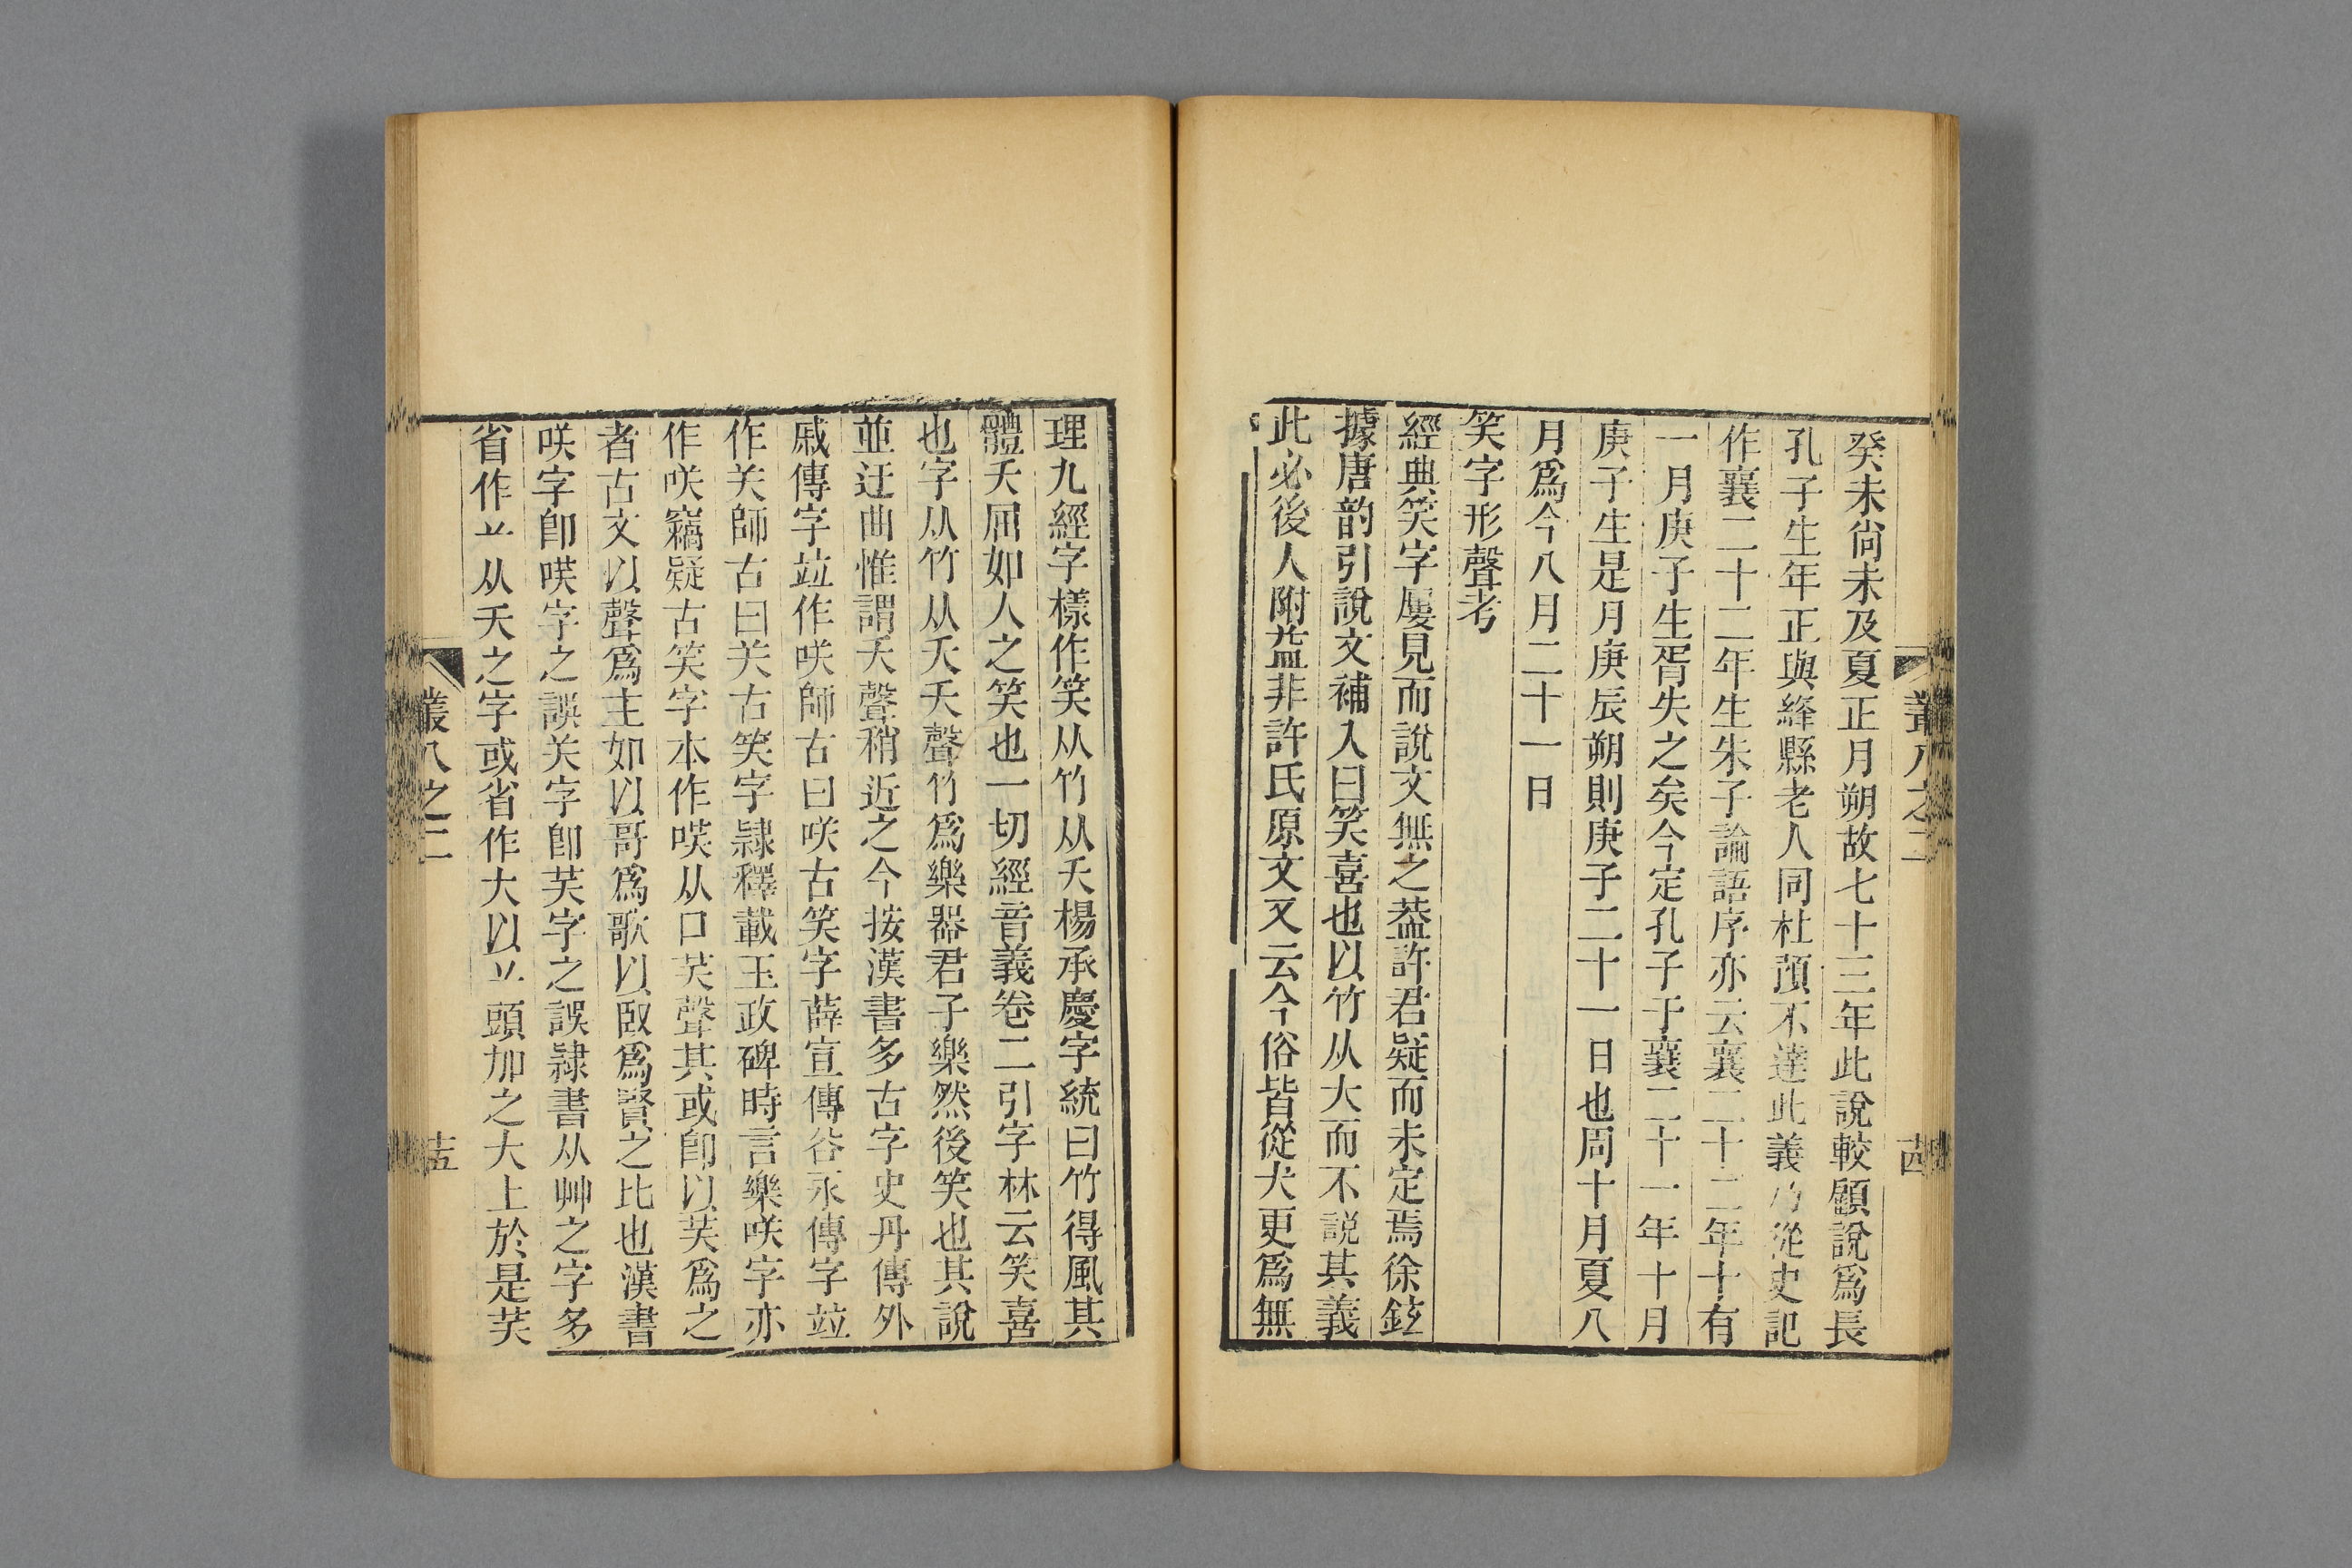 叢八之二
十四
癸未尙未及夏正月朔故七十三年此說較顧說爲長
孔子生年正與絳縣老人同杜預不達此義乃從史記
作襄二十二年生朱子論語序亦云襄二十二年十有
一月庚子生胥失之矣今定孔子于襄二十一年十月
庚子生是月庚辰朔則庚子二十一日也周十月夏八
月爲今八月二十一日
笑字形聲考
經典笑字屢見而說文無之葢許君疑而未定焉徐鉉
據唐韵引說文補入曰笑喜也以竹从犬而不說其義
此必後人附益非許氏原文又云今俗皆從犬更爲無
理九經字樣作笑从竹从夭楊承慶字統曰竹得風其
體夭屈如人之笑也一切經音義卷二引字林云笑喜
也字从竹从夭夭聲竹爲樂器君子樂然後笑也其說
並迂曲惟謂夭聲稍近之今按漢書多古字史丹傳外
戚傳字竝作咲師古曰咲古笑字薛宣傳谷永傳字竝
作关師古曰关古笑字隷釋載王政碑時言樂咲字亦
作咲竊疑古笑字本作㗛从口芺聲其或卽以芺爲之
者古文以聲爲主如以哥爲歌以臤爲賢之比也漢書
咲字卽㗛字之誤关字卽芺字之誤隷書从艸之字多
省作䒑从夭之字或省作大以䒑頭加之大上於是芺
叢八之二
十五